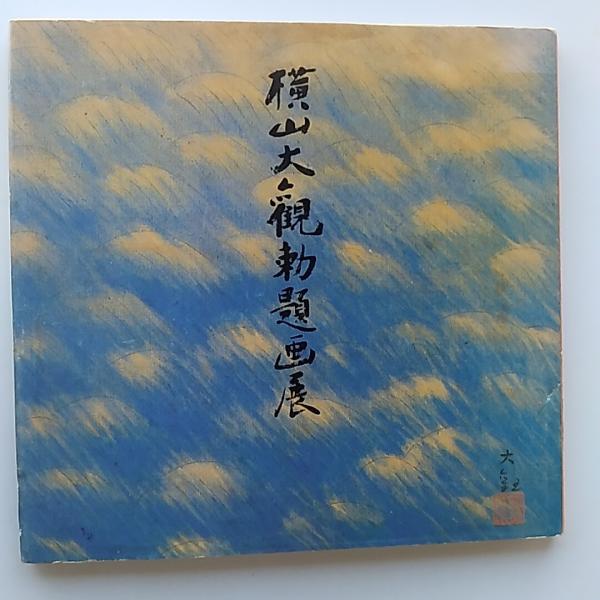 横山大觀勅題画展
大観